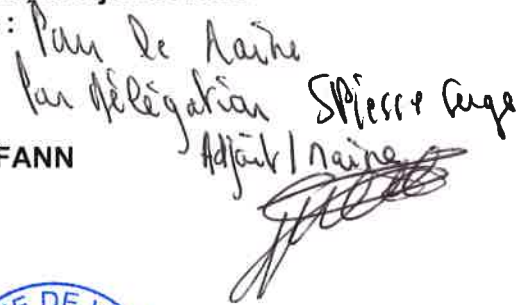 : Pour le Maire
Par délégation SPierre Serge
FANN Adjoint / Maire
E DE L